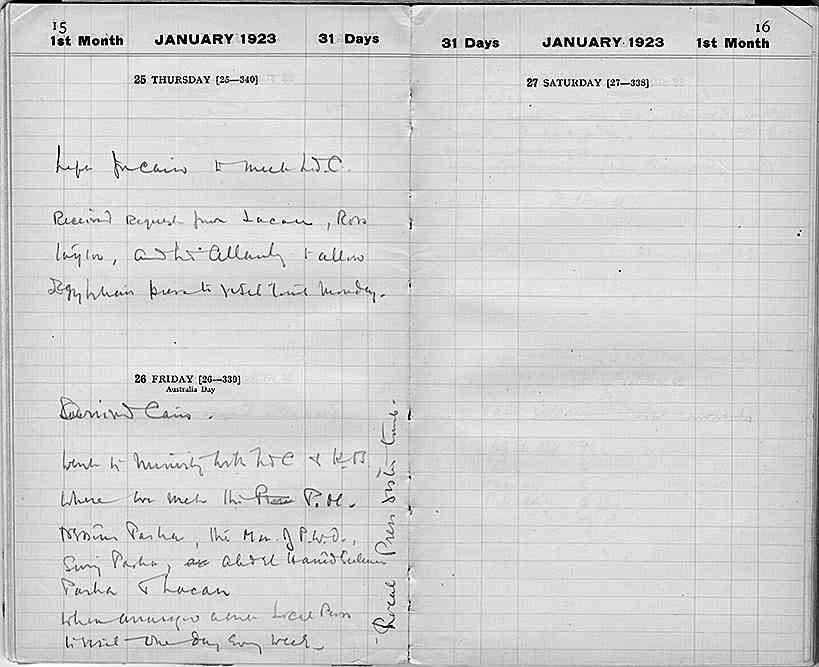 15
1st Month JANUARY 1923 31 Days
25 THURSDAY [25—340]
Left for Cairo to meet Ld. C.
Received request from Lacau, Ross
Taylor, and Ld. Allenby to allow
Egyptian press to visit Tomb Monday.
26 FRIDAY [26—339]
Australia Day
Arrived Cairo.
Went to Ministry with Ld C &
where we met the P.M.
Nessim Pasha, the Min. of P.W.D.,
Pasha, Abd el Hamid Suleiman
Pasha & Lacau
When arranged allow Local Press
to visit one day every week
- Local Press visits Tomb -
16
31 Days JANUARY 1923 1st Month
27 SATURDAY [27—338]